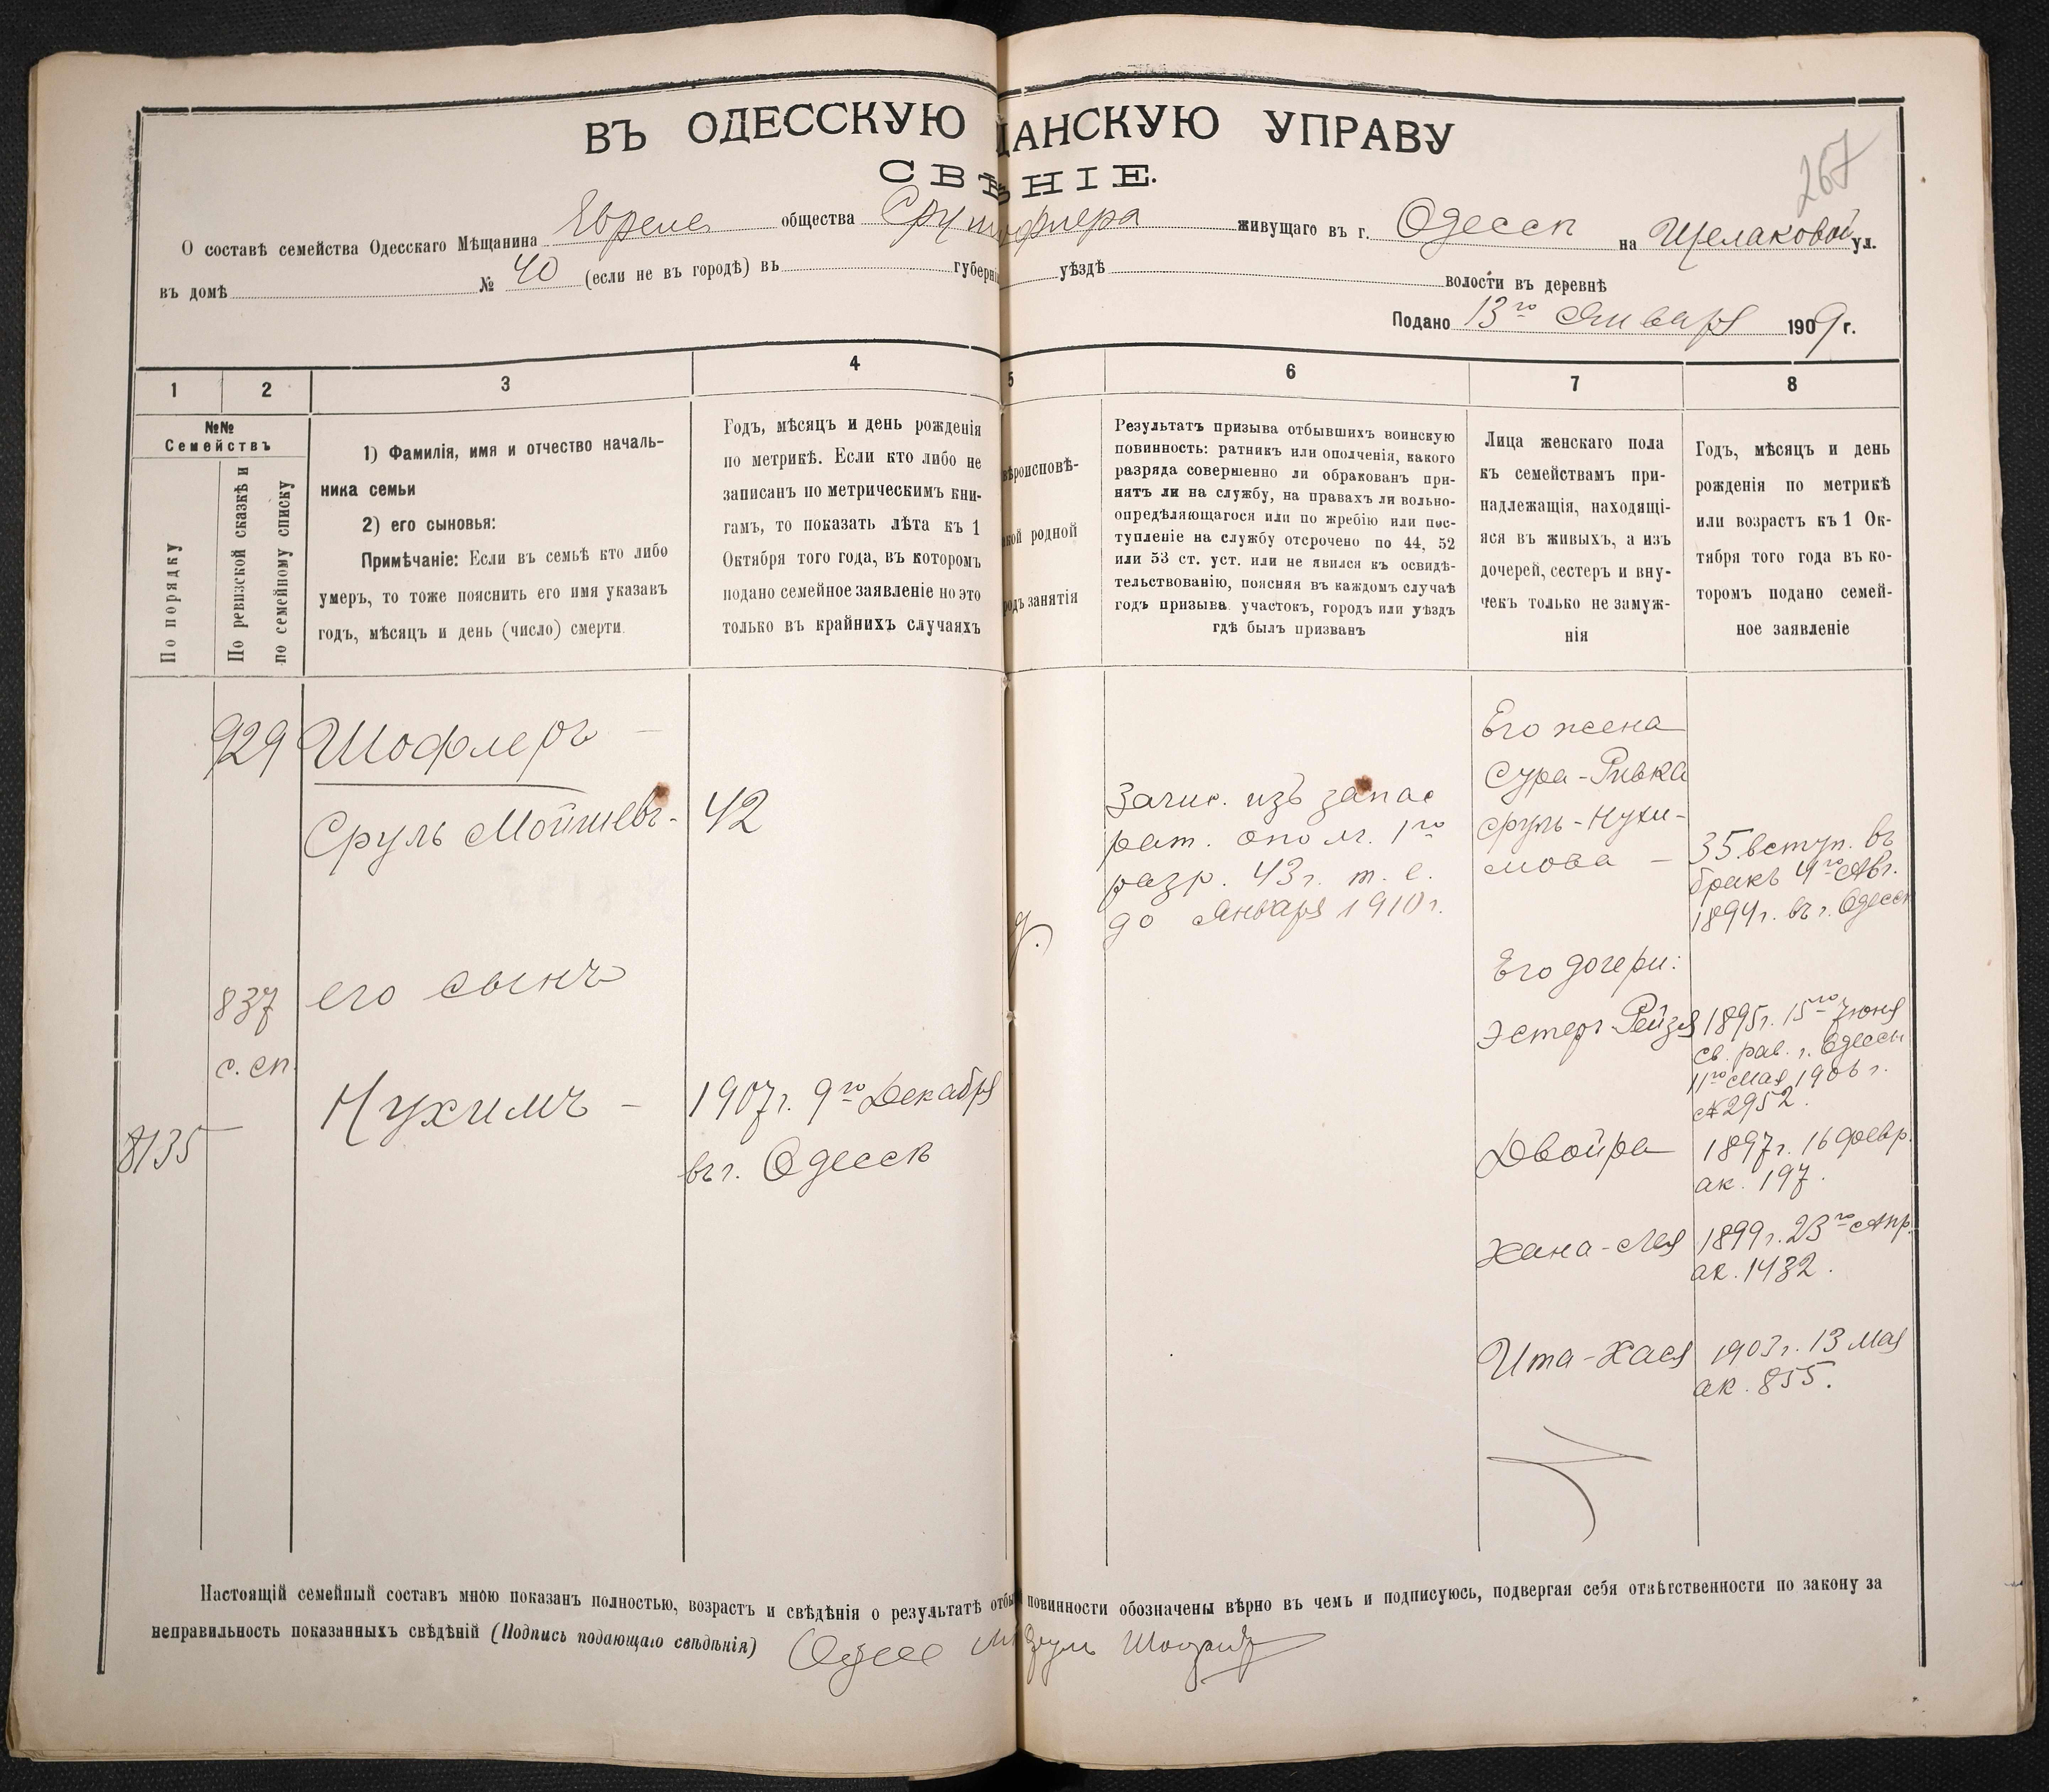 ВЪ ОДЕССКУЮ ЩАНСКУЮ УПРАВУ
СВѢ НІЕ.
267
О составѣ семейства Одесскаго Мѣщанина Еврея общества Сруля Шофлера живущаго въ г. Одессѣ на Щелаковой ул.
въ домѣ № 40 (если не въ городѣ) въ губерніи уѣздѣ волости въ деревнѣ
Подано 13го Января 1909 г.
1 2 3 4 5 6 7 8
№№
Семействъ
По порядку
По ревизской сказкѣ и
по семейному списку
1) Фамилія, имя и отчество началь-
ника семьи
2) его сыновья:
Примѣчаніе: Если въ семьѣ кто либо
умеръ, то тоже пояснить его имя указавъ
годъ, мѣсяцъ и день (число) смерти.
Годъ, мѣсяцъ и день рожденія
по метрикѣ. Если кто либо не
записанъ по метрическимъ кни-
гамъ, то показать лѣта къ 1
Октября того года, въ которомъ
подано семейное заявленіе но это
только въ крайнихъ случаяхъ
вѣроисповѣ-
акой родной
родъ занятія
Результатъ призыва отбывшихъ воинскую
повинность: ратникъ или ополченія, какого
разряда совершенно ли обракованъ при-
нятъ ли на службу, на правахъ ли вольно-
опредѣляющагося или по жребію или пос-
тупленіе на службу отсрочено по 44, 52
или 53 ст. уст. или не явился къ освидѣ-
тельствованію, поясняя въ каждомъ случаѣ
годъ призыва. участокъ, городъ или уѣздъ
гдѣ былъ призванъ
Лица женскаго пола
къ семействамъ при-
надлежащія, находящі-
яся въ живыхъ, а изъ
дочерей, сестеръ и вну-
чекъ только не замуж-
нія
Годъ, мѣсяцъ и день
рожденія по метрикѣ
или возрастъ къ 1 Ок-
тября того года въ ко-
торомъ подано семей-
ное заявленіе
929 Шофлеръ —
Сруль Мойшевъ - 42
837 его сынъ
с. сп.
Нухимъ — 1907г. 9го Декабря
8135
въ г. Одессѣ
Зачис. изъ запас
рат. ополч. 1го
разр. 43г. т. е.
до Января 1910г.
Его жена
Сура-Ривка
Сруль-Нухи-
мова — 35. вступ. въ
бракъ 4го Авг.
1894г. въ г. Одессѣ
Его дочери:
Эстеръ-Рейзя 1895г. 15го Іюня
св. рав. г. Одессы
11го Мая 1906г.
№2952.
Двойра 1897г. 16 Февр.
ак. 197.
Хана-Лея 1899г. 23го Апр.
ак. 1432.
Ита-Хася 1903г. 13 Мая
ак. 855.
Настоящій семейный составъ мною показанъ полностью, возрастъ и свѣдѣнія о результатѣ отбы повинности обозначены вѣрно въ чемъ и подписуюсь, подвергая себя отвѣтственности по закону за
неправильность показанныхъ свѣдѣній (Подпись подающаго свѣдѣнія)